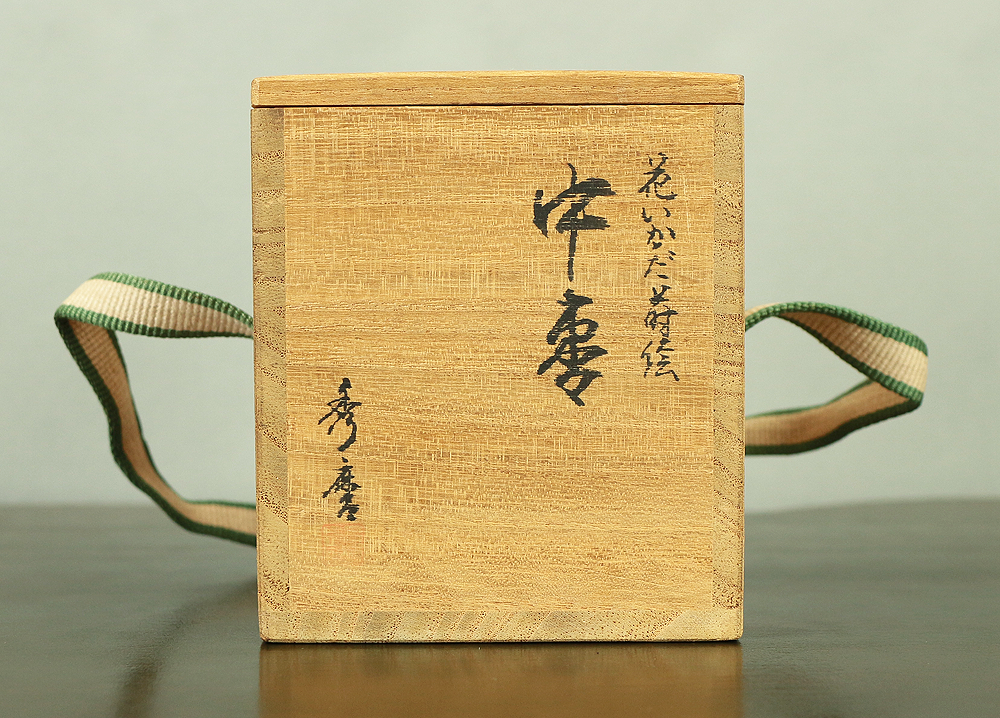 花いかだ蒔絵
中棗
秀麿